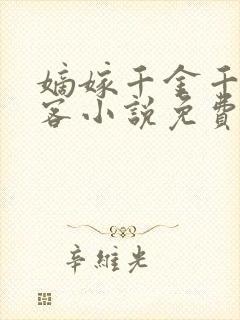 嫡嫁千金千
客小說免費
辛維光